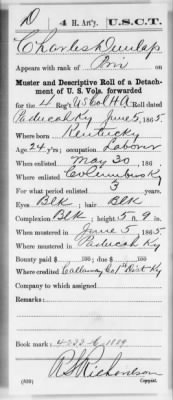 D | 4 H. Art'y. | U.S.C.T.
Charles Dunlap
Appears with rank of Priv on
Muster and Descriptive Roll of a Detach-
ment of U. S. Vols. forwarded
for the 4 Reg't US Col HA Roll dated
Paducah Ky June 5, 1865.
Where born Kentucky
Age 24 y'rs; occupation Laborer
When enlisted May 30, 186 .
Where enlisted Columbus Ky
For what period enlisted 3 years.
Eyes Blk ; hair Blk
Complexion Blk ; height 5 ft. 9 in.
When mustered in June 5, 1865
Where mustered in Paducah Ky
Bounty paid $ 100 ; due $ 100
Where credited Callaway Co 1st Dist Ky
Company to which assigned
Remarks:
Book mark: 4222-C-1889
R S Richardson
(339) Copyist.